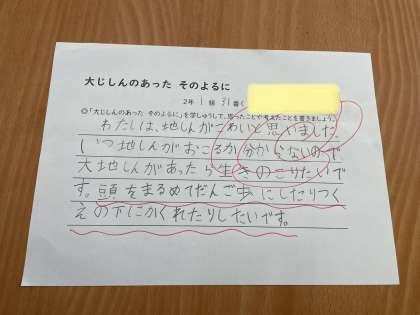 大じしんのあった そのよるに
2年 1組 31番(
◎「大じしんのあった そのよるに」を学しゅうして、思ったことや考えたことを書きましょう。
わたしは、地しんがこわいと思いました。
いつ地しんがおこるか分からないので
大地しんがあったら生きのこりたいで
す。頭をまるめてだんご歩にしたりつく
えの下にかくれたりしたいです。